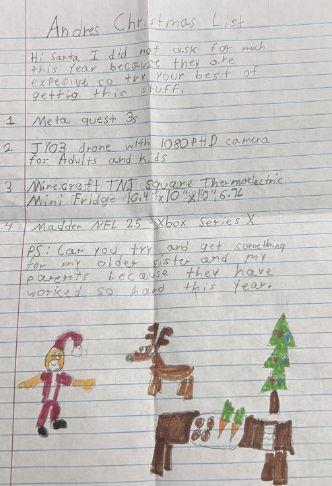 Andres Christmas List
Hi Santa I did not ask for much
this year because they are
expecive so try your best of
getting this stuff.
1 Meta quest 3s
2 JY03 drone with 1080PHD camera
for Adults and kids
3 Minecraft TNT square Thermoelectric
Mini Fridge 10.4"x10"x10" 6.7L
4 Madden NFL 25 - Xbox Series X
PS: Can you try and get something
for my older sister and my
parents because they have
worked so hard this year.